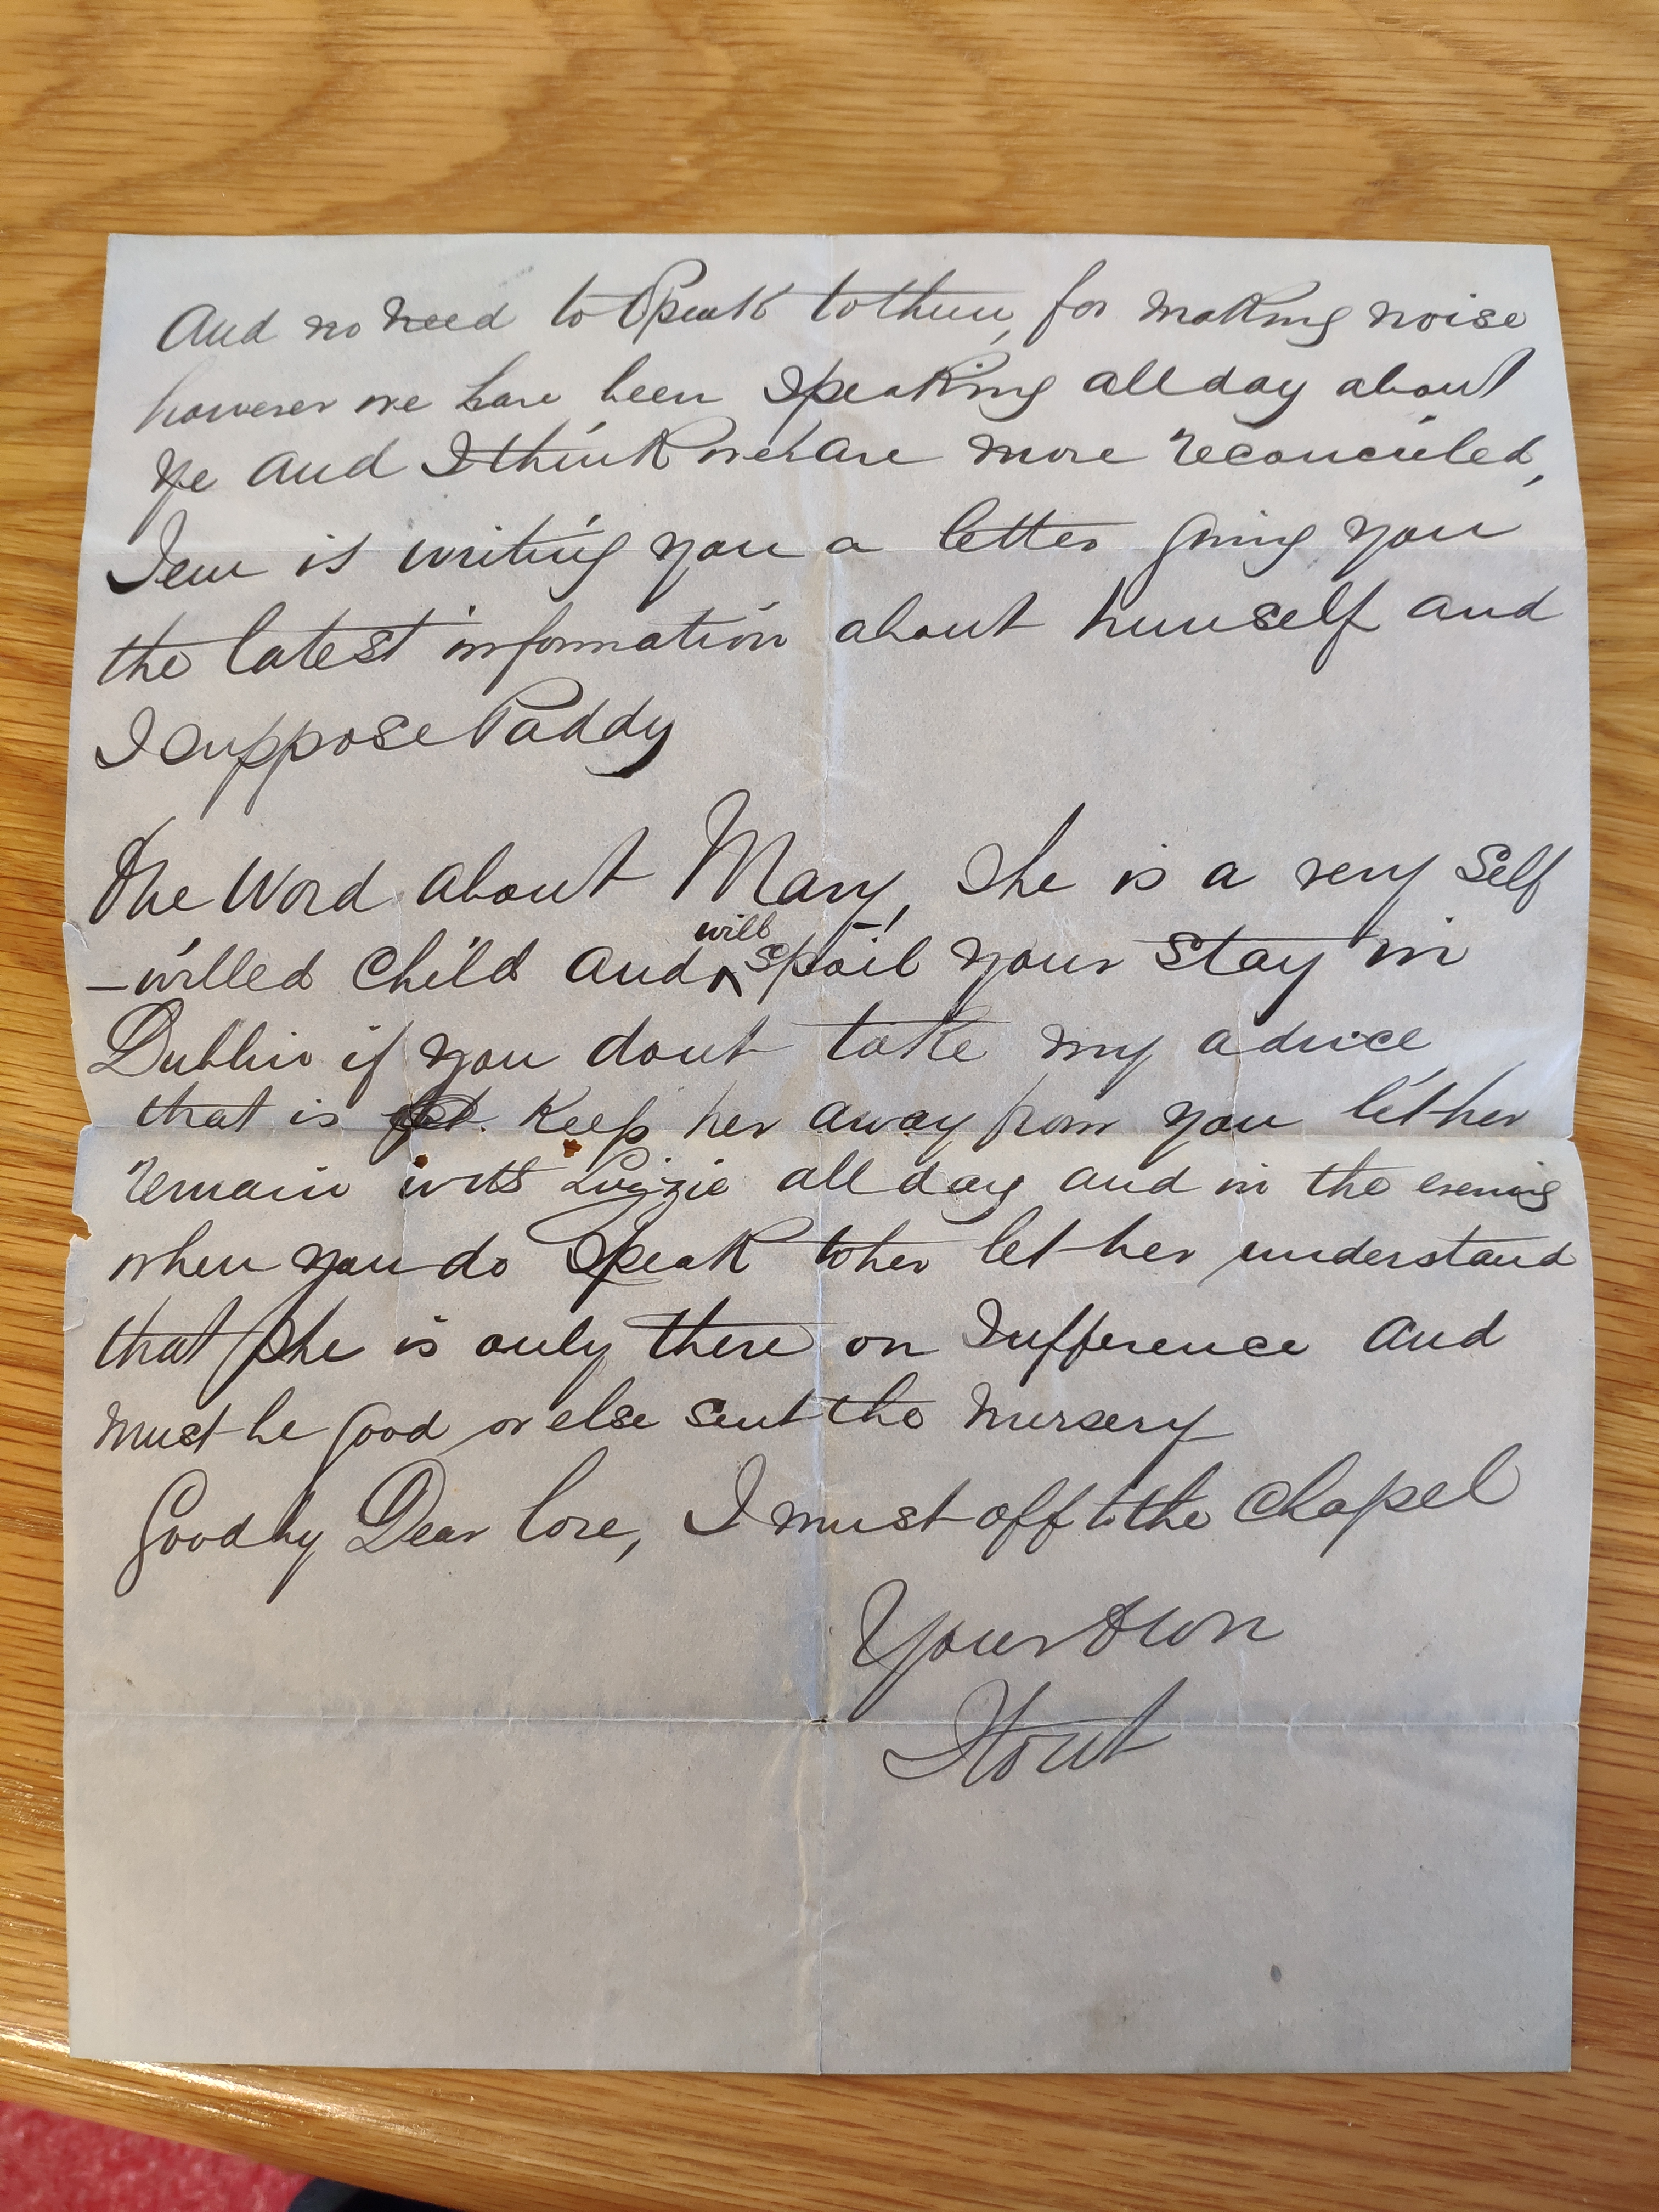 And no need to Speak to them, for making noise
however we have been Speaking all day about
ye and I think we are more reconciled,
Jem is writing you a letter giving you
the latest information about himself and
I suppose Paddy
One Word about Mary, She is a very Self
-willed Child and will spoil your stay in
Dublin if you dont take my advice
that is Keep her away from you let her
remain with Lizzie all day and in the evening
when you do Speak to her let her understand
that She is only there on Sufference and
must be good or else sent the nursery
Goodby Dear love, I must off to the Chapel
Your Own